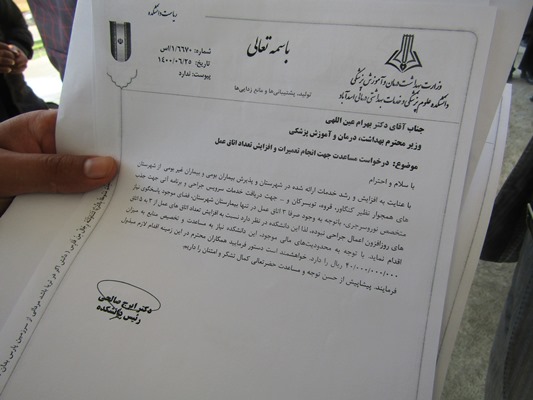 ریاست دانشکده
باسمه تعالی
شماره: ۱/۶۶۷۰/اس
تاریخ: ۱۴۰۰/۰۶/۲۵
پیوست: ندارد
تولید، پشتیبانی‌ها و مانع زدایی‌ها
وزارت بهداشت درمان و آموزش پزشکی
دانشکده علوم پزشکی و خدمات بهداشتی درمانی اسدآباد
جناب آقای دکتر بهرام عین اللهی
وزیر محترم بهداشت، درمان و آموزش پزشکی
موضوع: درخواست مساعدت جهت انجام تعمیرات و افزایش تعداد اتاق عمل
با سلام و احترام
با عنایت به افزایش و رشد خدمات ارائه شده در شهرستان و پذیرش بیماران بومی و بیماران غیر بومی از شهرستان
های همجوار نظیر کنگاور، قروه، تویسرکان و... جهت دریافت خدمات سرویس جراحی و برنامه آتی جهت جذب
متخصص نوروسرجری، باتوجه به وجود صرفا ۳ اتاق عمل در تنها بیمارستان شهرستان، فضای موجود پاسخگوی نیاز
های روزافزون اعمال جراحی نبوده، لذا این دانشکده در نظر دارد نسبت به افزایش تعداد اتاق های عمل از ۳ به ۵ اتاق
اقدام نماید. با توجه به محدودیت‌های مالی موجود، این دانشکده نیاز به مساعدت و تخصیص منابع به میزان
۴۰/۰۰۰/۰۰۰/۰۰۰ ریال را دارد. خواهشمند است دستور فرمایید همکاران محترم در این زمینه اقدام لازم مبذول
فرمایند. پیشاپیش از حسن توجه و مساعدت حضرتعالی کمال تشکر و امتنان را داریم.
دکتر ایرج صالحی
رئیس دانشکده